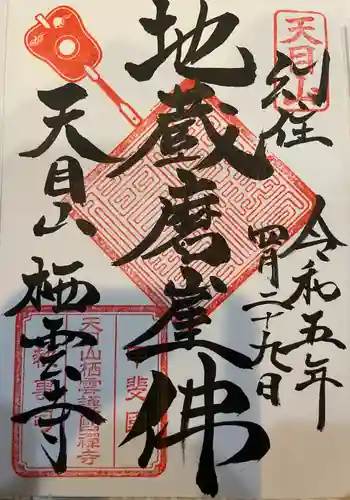 天目山
別住
令和五年
四月二十九日
地蔵磨崖佛
天目山 栖雲寺
甲斐国
天目山栖雲護國禅寺